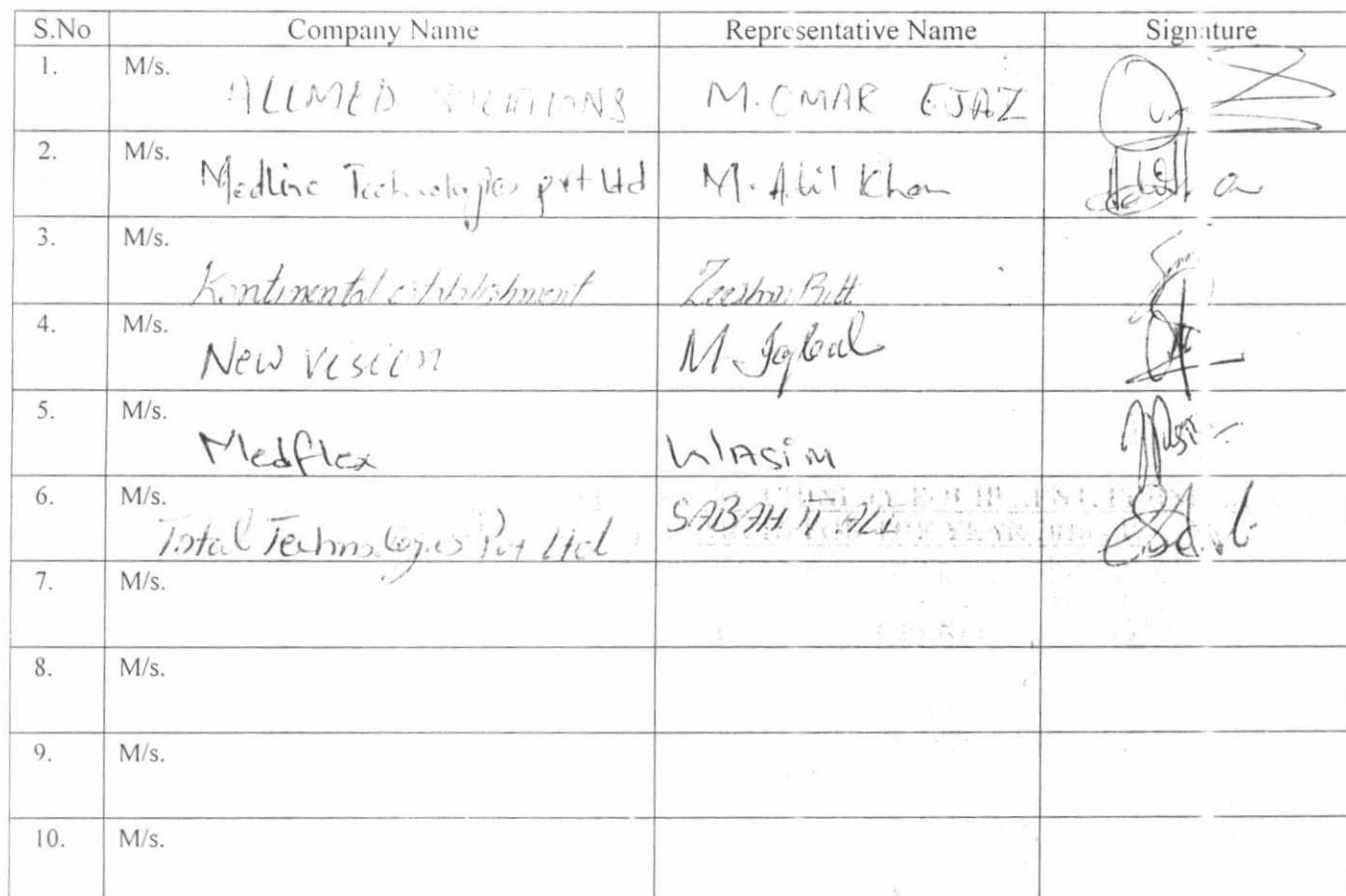 S.No Company Name Representative Name Signature
1. M/s. ALLMED M. OMAR EJAZ
2. M/s. Medline Technologies pvt Ltd M. Khan
3. M/s. Kontinental establishment Zeeshan Butt
4. M/s. New Vision M. Iqbal
5. M/s. Medflex WASIM
6. M/s. Total Technologies Pvt Ltd ALI
7. M/s.
8. M/s.
9. M/s.
10. M/s.